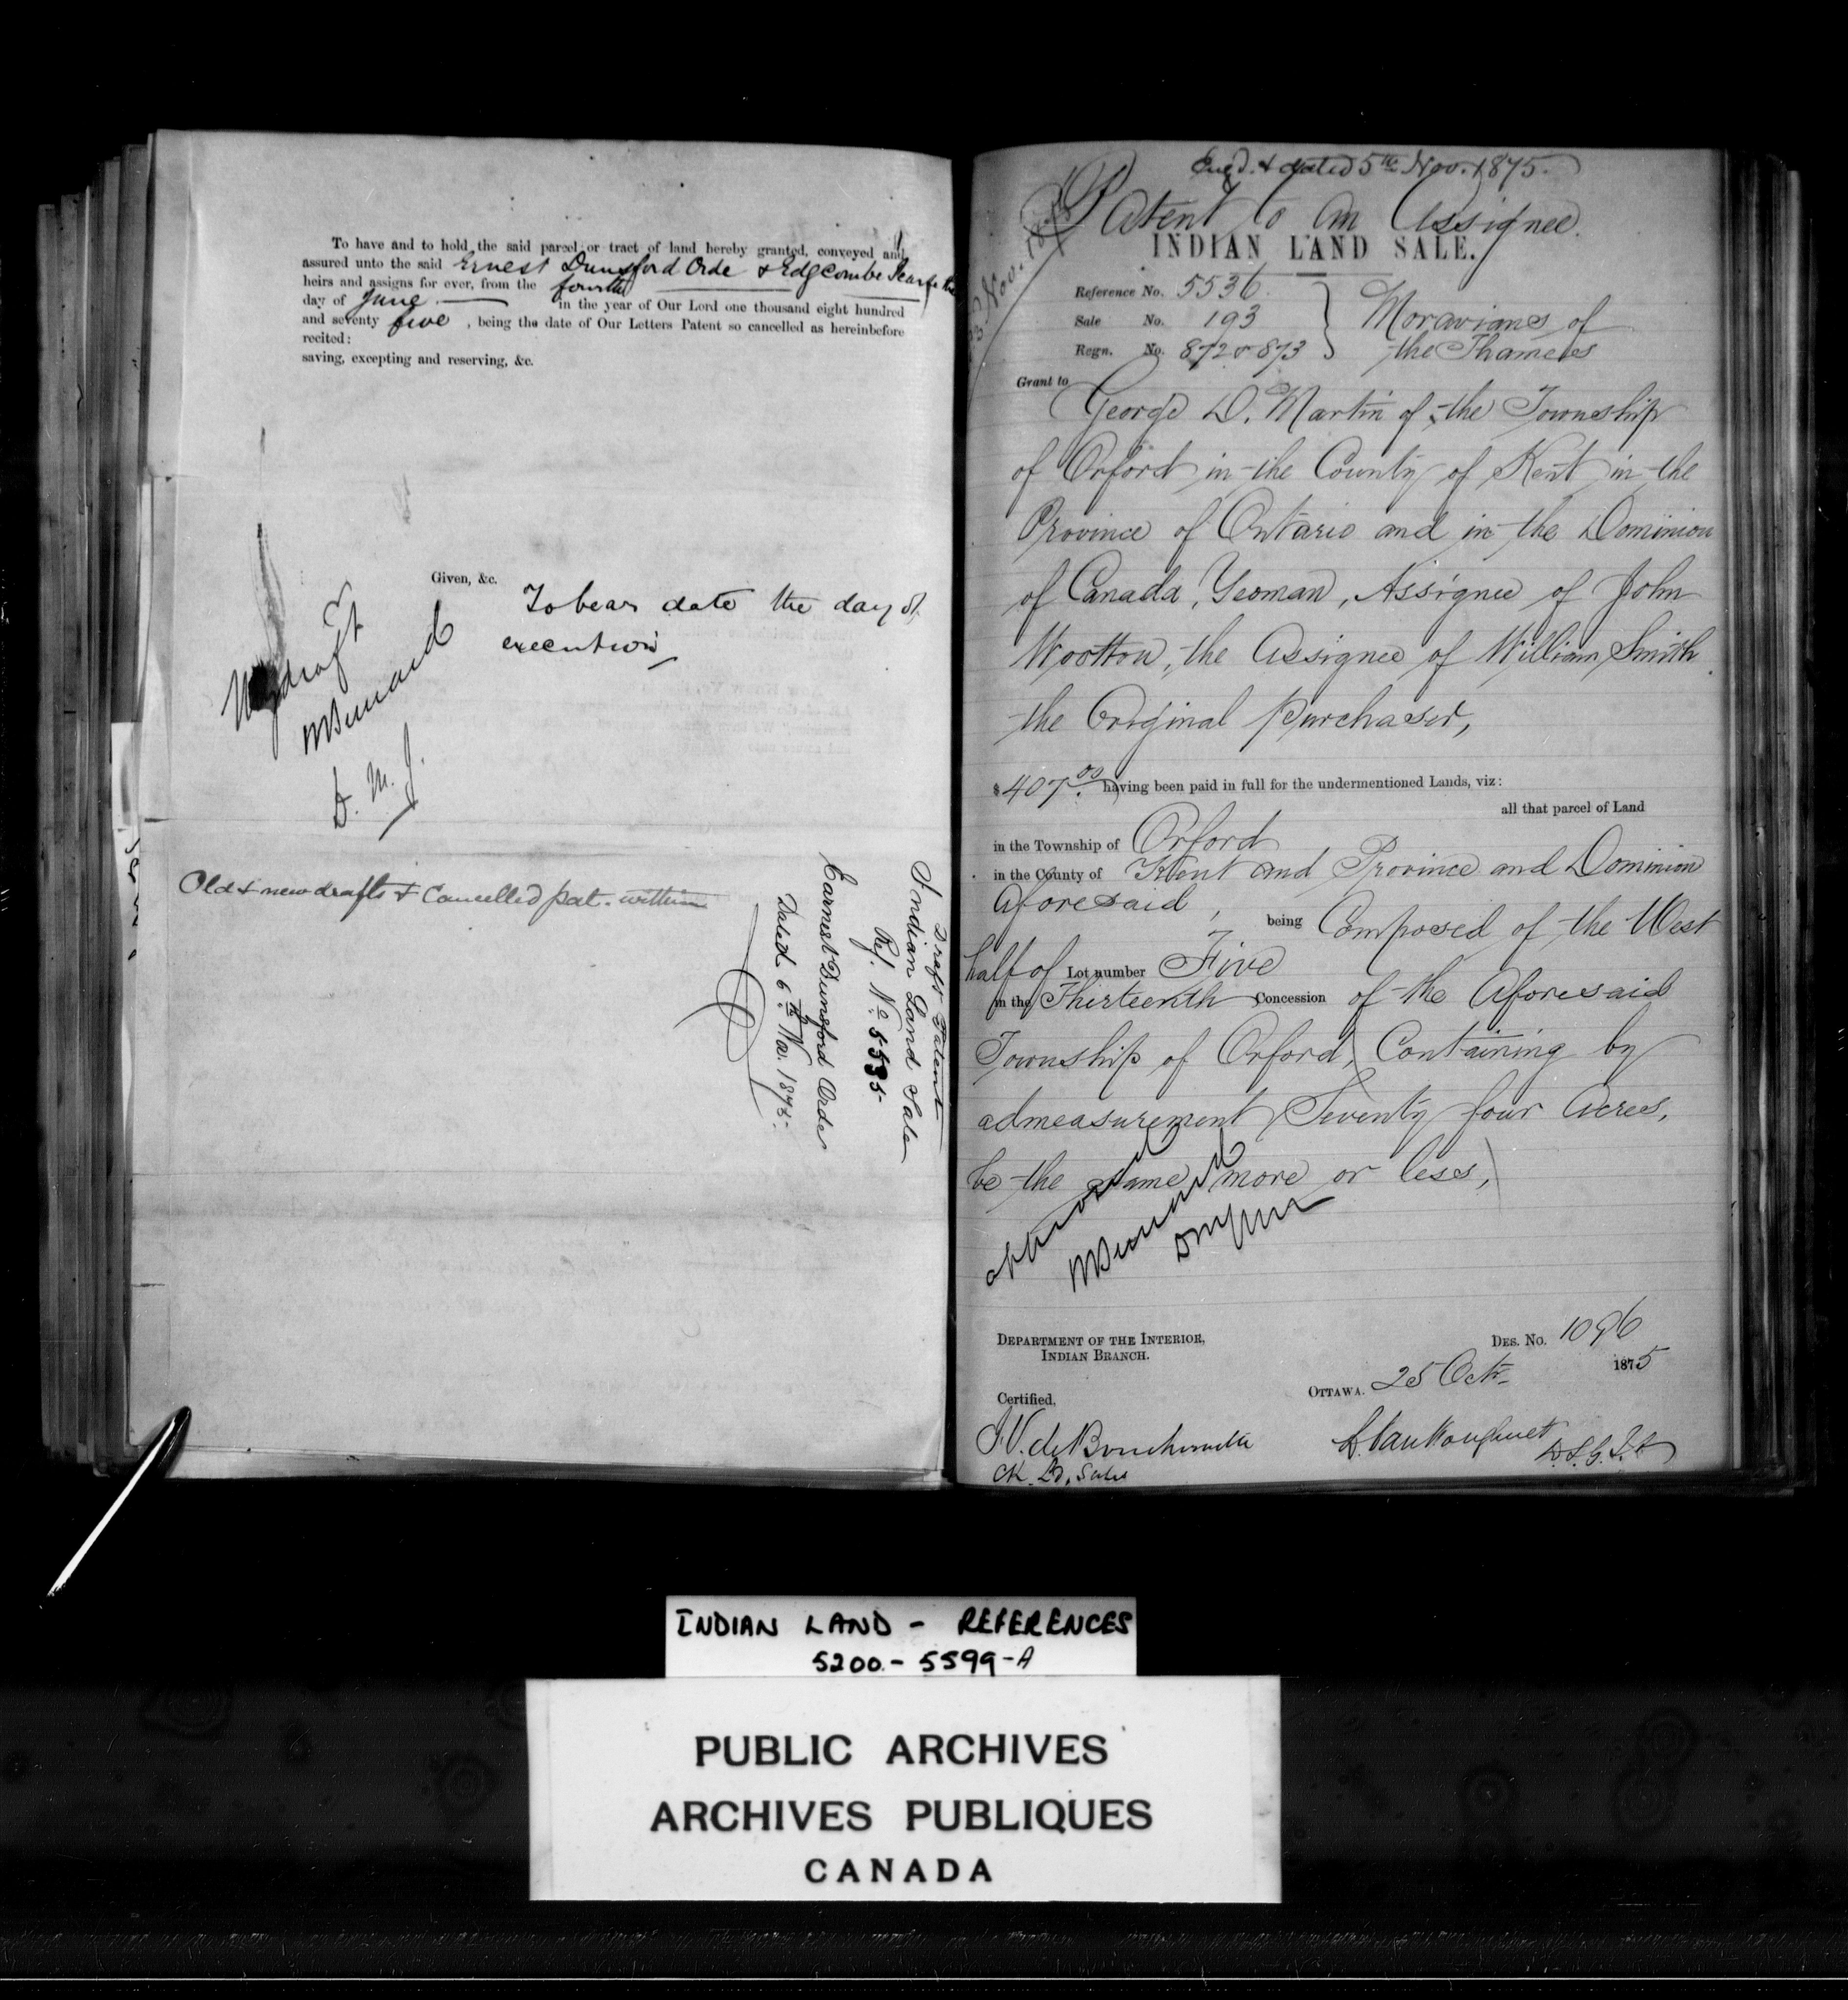 To have and to hold the said parcel or tract of land hereby granted, conveyed and
assured unto the said Ernest Dunsford Orde & Edgcombe Pearse their
heirs and assigns for ever, from the fourth
day of June in the year of Our Lord one thousand eight hundred
and seventy five, being the date of Our Letters Patent so cancelled as hereinbefore
recited:
saving, excepting and reserving, &c.
Given, &c. To bear date the day of
execution
My draft
D. M. J.
Old & new drafts & Cancelled pat. within
Draft Patent
Indian Land Sale
Ref. No. 5535
Earnest Dunsford Orde
Dated 6th Nov. 1875.
Eng'd. & dated 5th Nov. 1875.
Nov. 1875
Patent to an Assignee.
INDIAN LAND SALE.
Reference No. 5536.
Sale No. 193
Regn. No. 872 & 873
Moravians of
the Thames
Grant to
George D. Martin of the Township
of Orford in the County of Kent in the
Province of Ontario and in the Dominion
of Canada, Yeoman, Assignee of John
Wootton, the Assignee of William Smith
the Original purchaser,
$407.00 having been paid in full for the undermentioned Lands, viz:
all that parcel of Land
in the Township of Orford
in the County of Kent and Province and Dominion
Aforesaid, being Composed of the West
half of Lot number Five
in the Thirteenth Concession of the Aforesaid
Township of Orford, Containing by
admeasurement Seventy four Acres,
be the same more or less,
approved
DEPARTMENT OF THE INTERIOR,
INDIAN BRANCH.
DES. NO. 1096
OTTAWA. 25 Octr. 1875
Certified,
J. V. de Boucherville
Ck. Ld. Sales
L. Vankoughnet D.S.G.I.A
INDIAN LAND - REFERENCES
5200 - 5599-A
PUBLIC ARCHIVES
ARCHIVES PUBLIQUES
CANADA